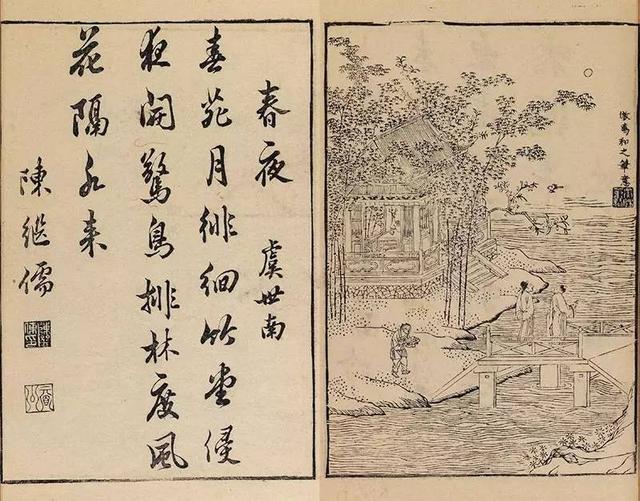 倣馬和之筆意
春夜
虞世南
春苑月徘徊竹堂侵
夜開驚鳥排林度風
花隔水來
陳繼儒